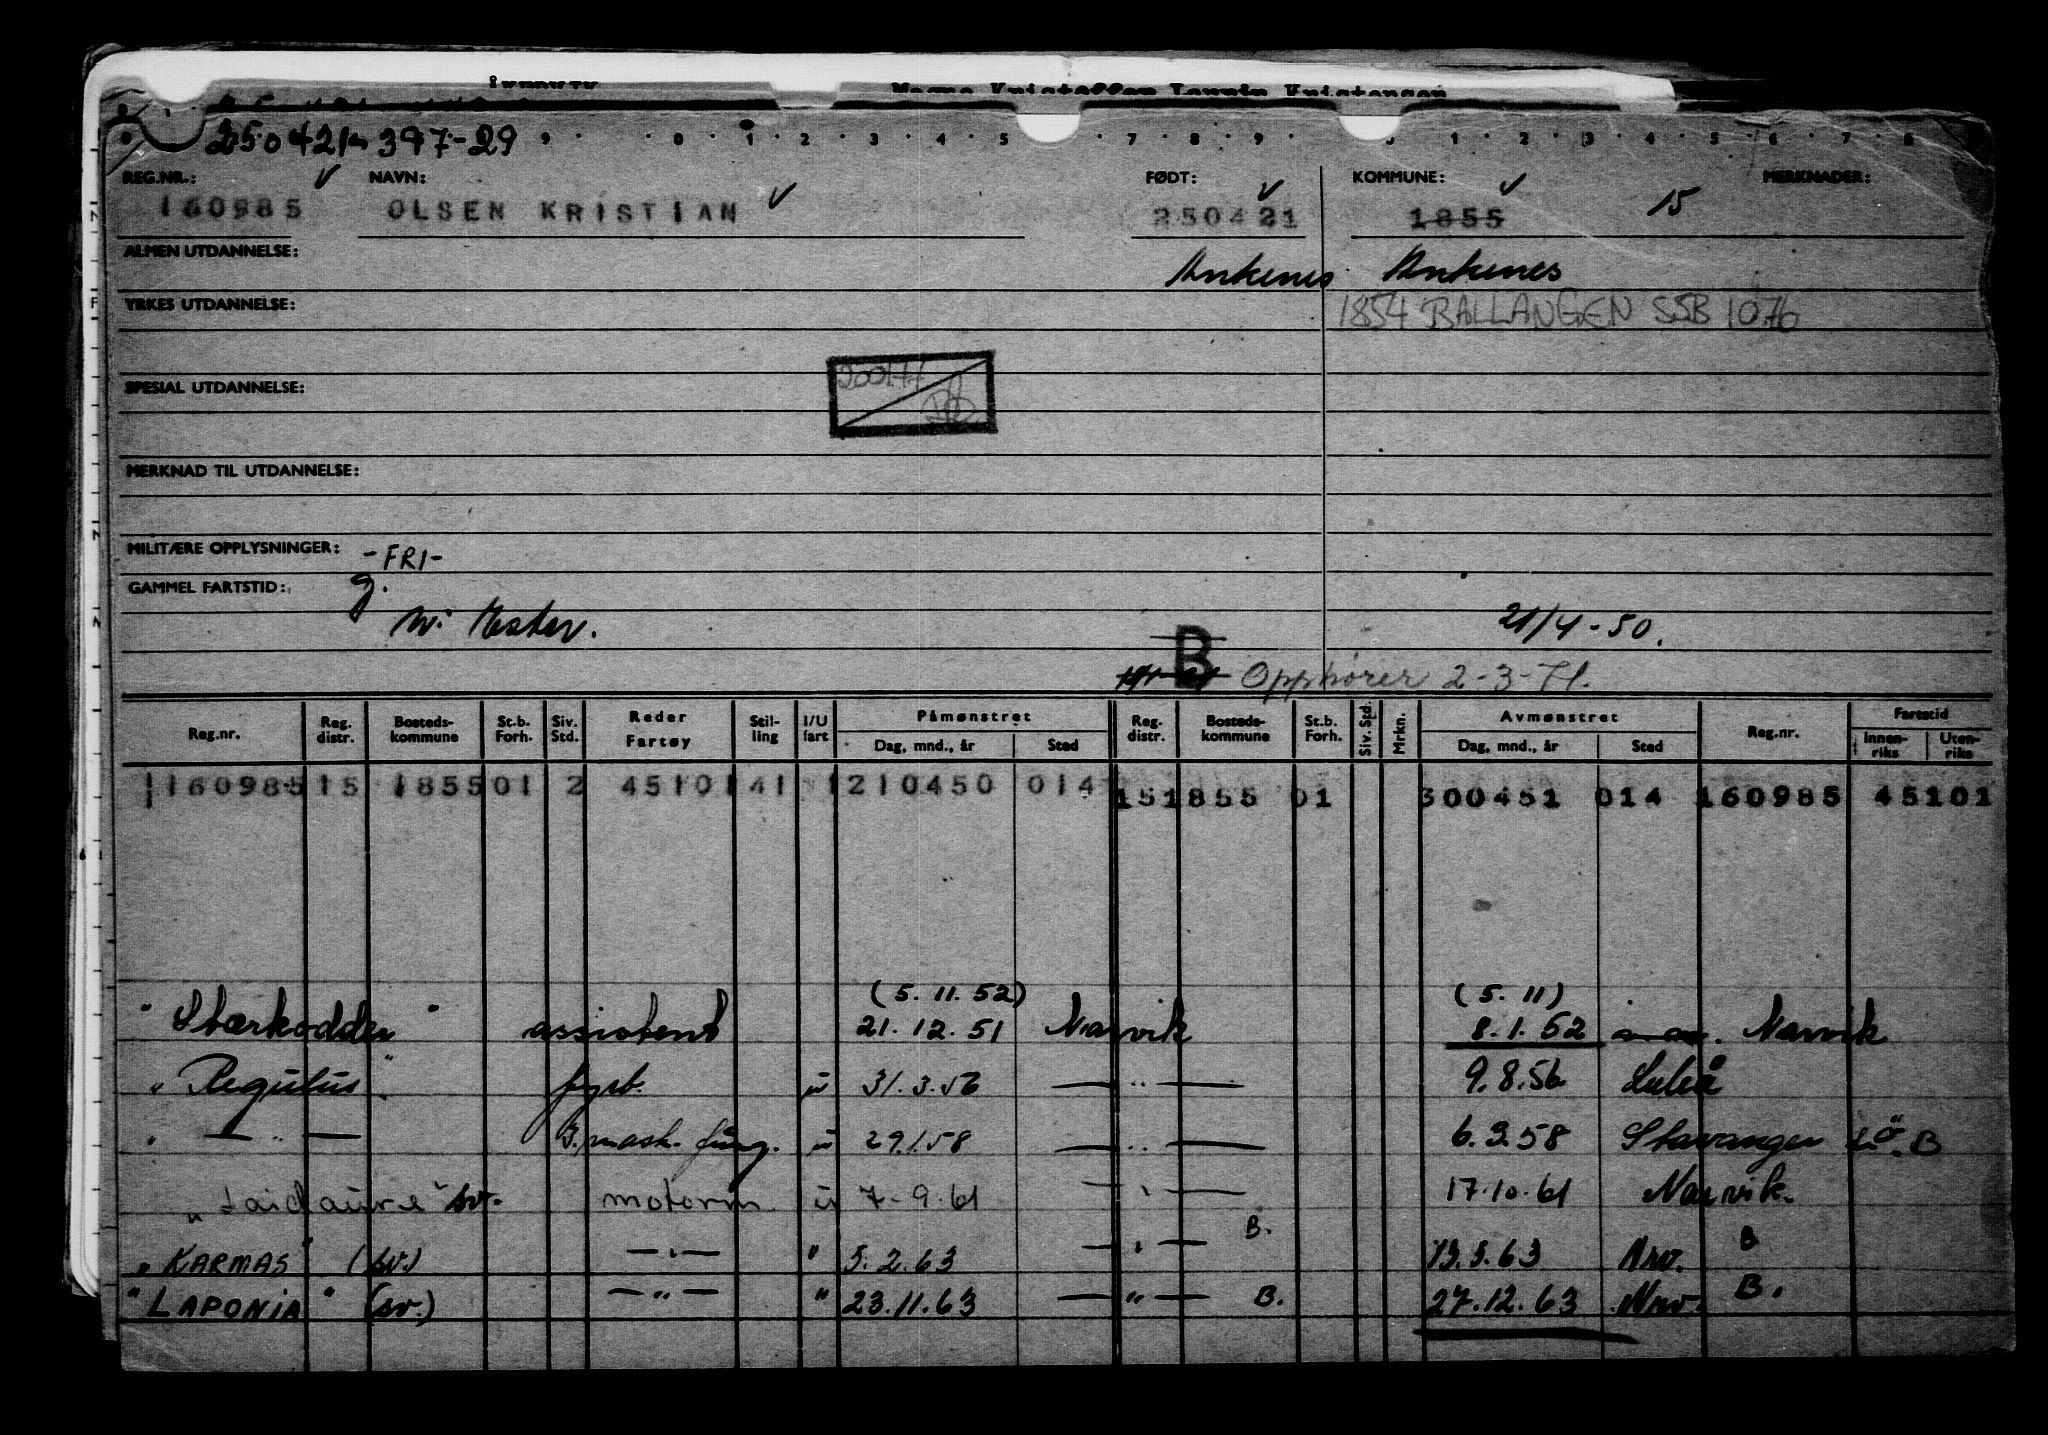 250421 - 397-29
REG.NR.: NAVN: FØDT: KOMMUNE: MERKNADER:
160985 OLSEN KRISTIAN 250421 1855 15
ALMEN UTDANNELSE: Ankenes Ankenes
YRKES UTDANNELSE: 1854 BALLANGEN SSB 10.76
SPESIAL UTDANNELSE:
MERKNAD TIL UTDANNELSE:
MILITÆRE OPPLYSNINGER: -FRI-
GAMMEL FARTSTID: g.
21/4-50.
B Opphører 2-3-71.
Reg.nr. Reg. distr. Bosteds-kommune St.b. Forh. Siv. Std. Reder Fartøy Stil-ling I/U fart Påmønstret Dag, mnd., år Sted Reg. distr. Bosteds-kommune St.b. Forh. Siv. Std. Mrkn. Avmønstret Dag, mnd., år Sted Reg.nr. Fartstid Innen-riks Uten-riks
1160985 15 1855 01 2 45101 41 1 210450 014 15 1855 01 300451 014 160985 45101
(5.11.52) (5.11)
"Stærkodder" assistent 21.12.51 Narvik 8.1.52 Narvik
"Regulus" fyrb. u 31.3.56 — " — 9.8.56 Luleå
" — " — 3. mask. fung. u 29.1.58 — " — 6.9.58 Stavanger s.ö. B
"Laidaure" sv. motorm u 7-9.61 — " — 17.10.61 Narvik.
"KARMAS" (sv.) — " — " 5.2.63 — " — B. 13.3.63 Nrv. B
"LAPONIA" (sv.) — " — " 23.11.63 — " — B. 27.12.63 Nrv. B.